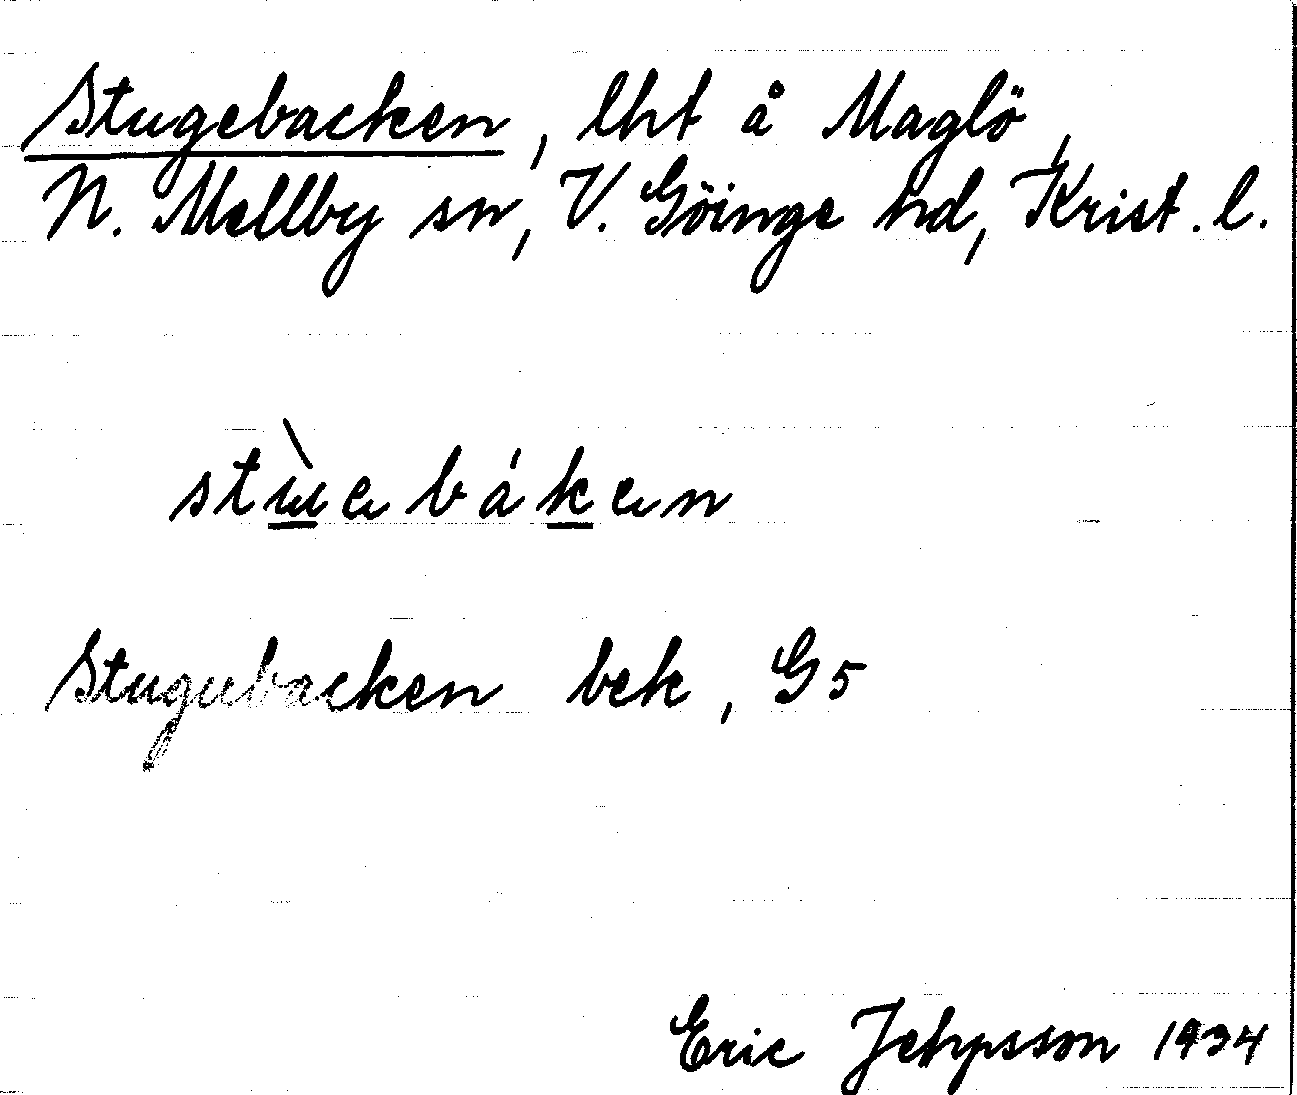 Stugebacken, lht å Maglö,
N. Mellby sn, V. Göinge hd, Krist. l.
stùebáken
Stugubacken bek, G5
Eric Jeppsson 1934